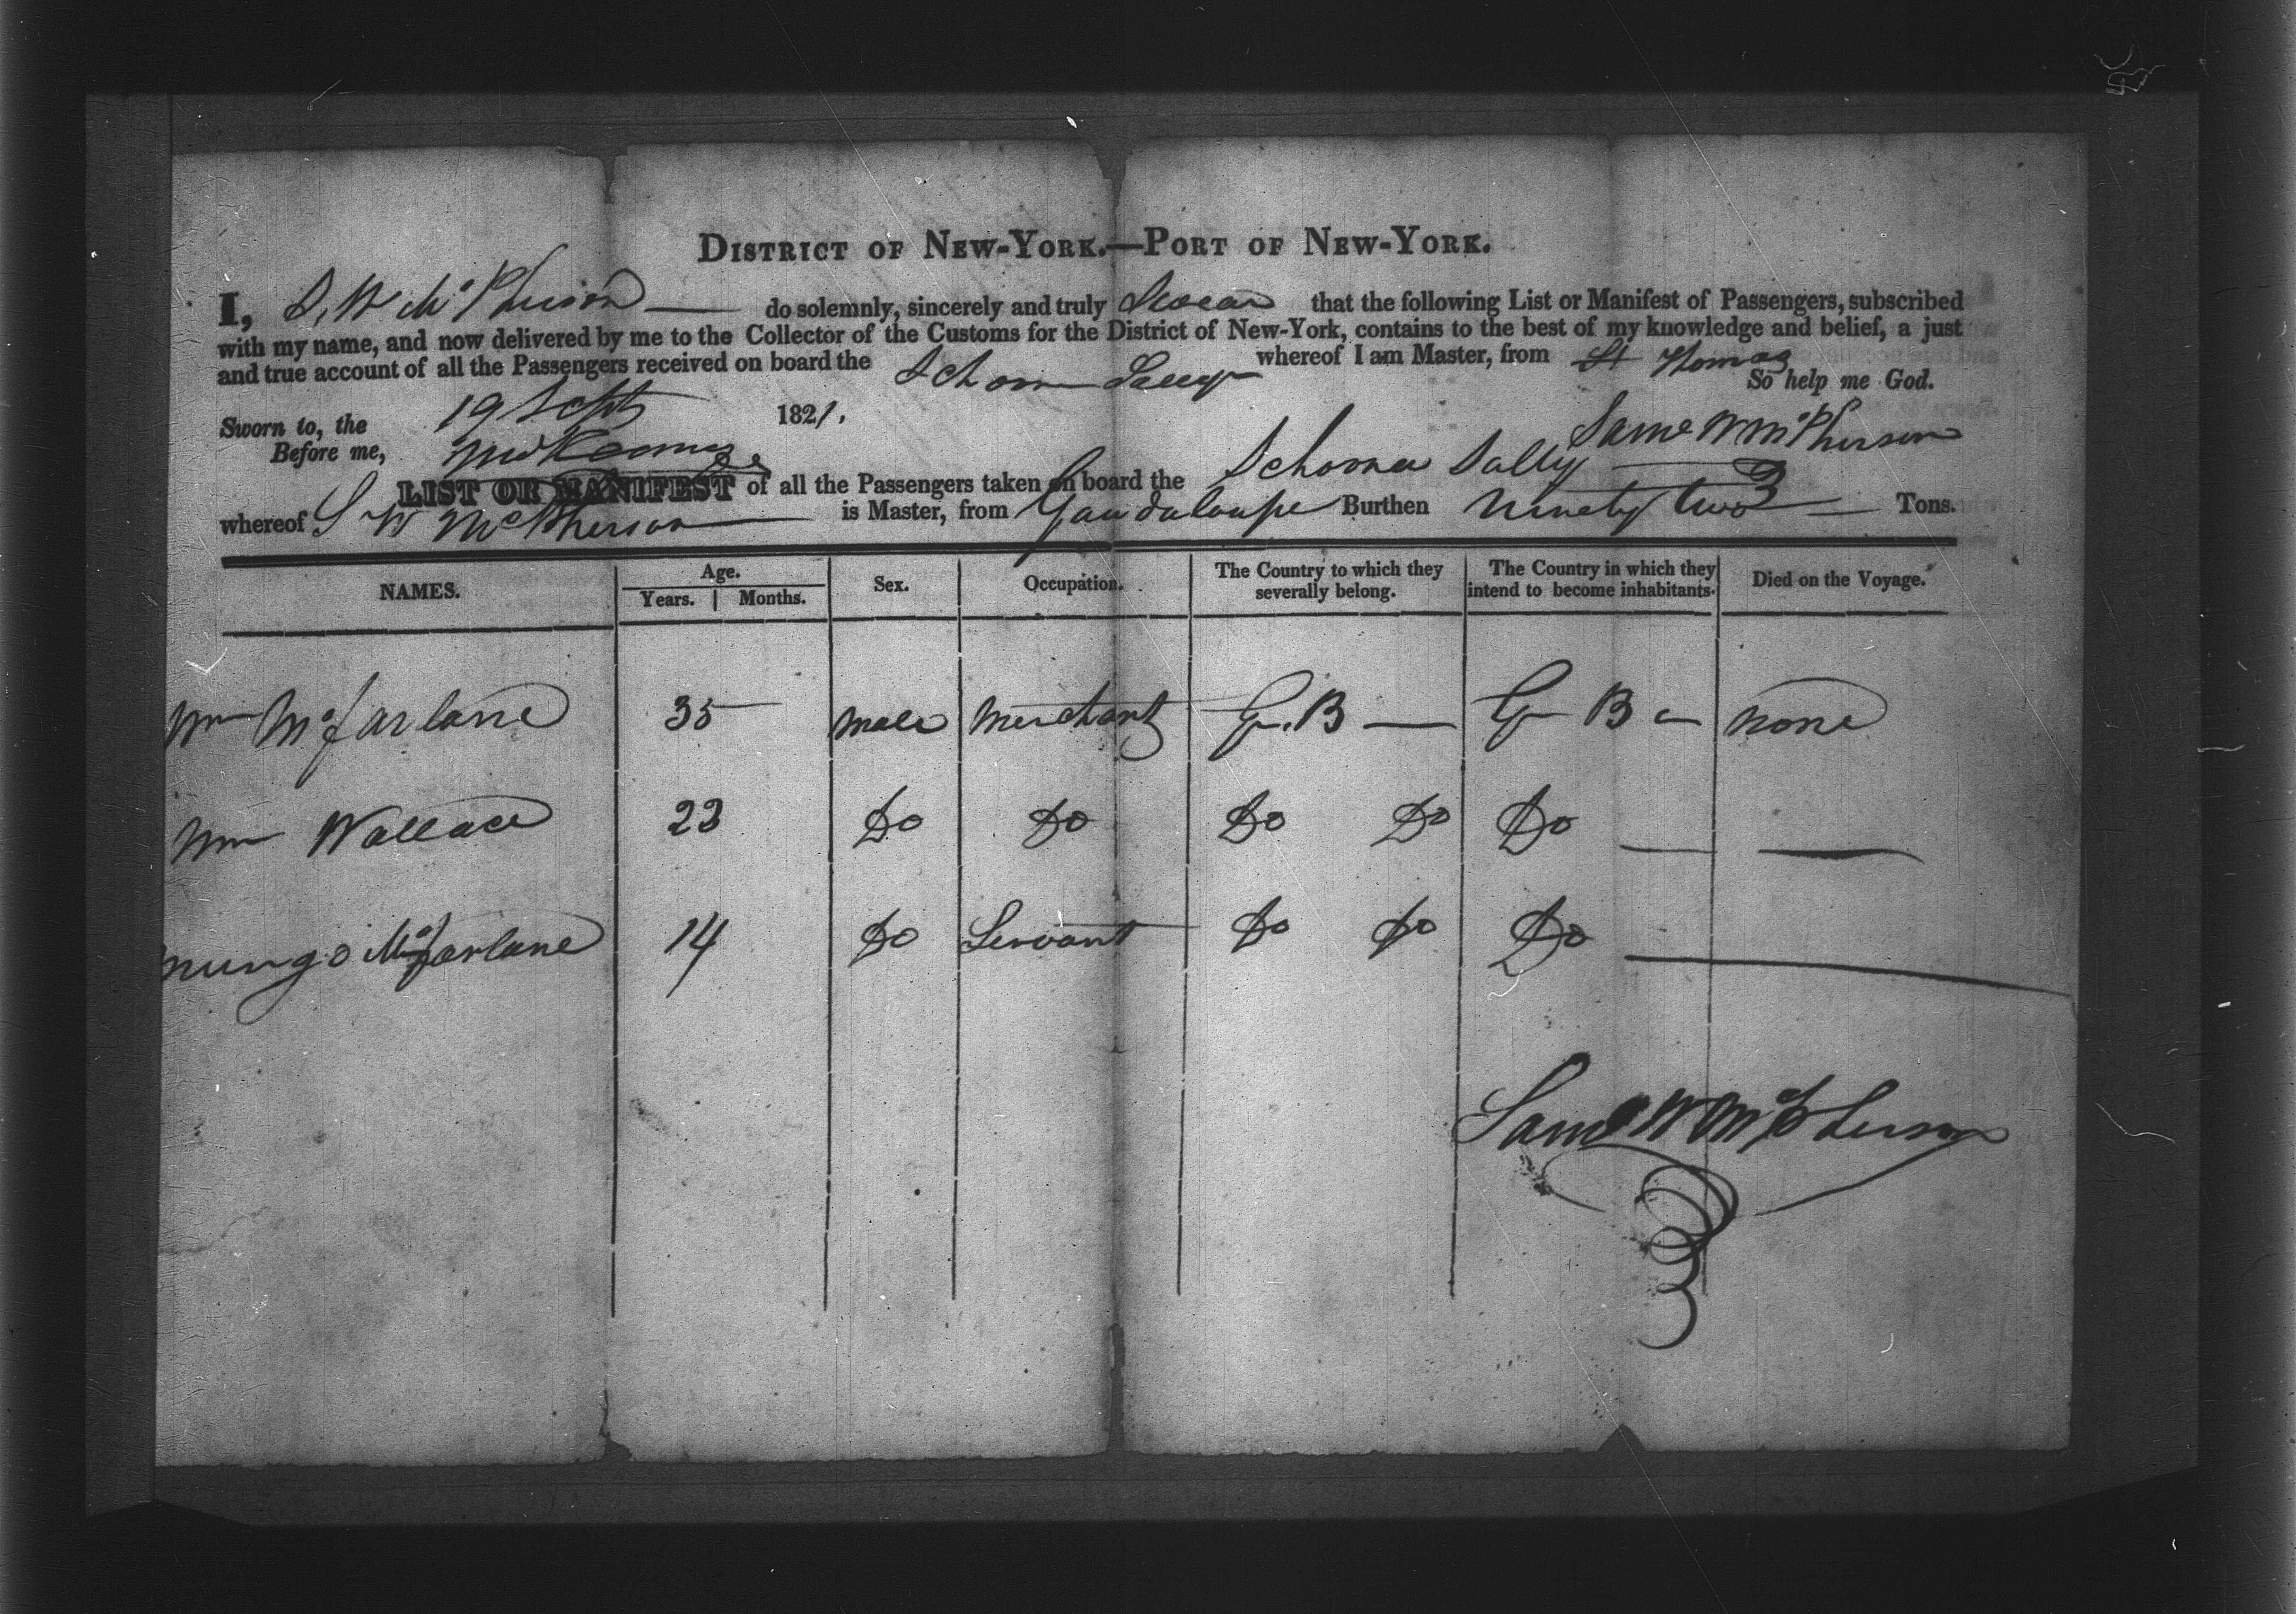 DISTRICT OF NEW-YORK.—PORT OF NEW-YORK.
I, S. W McPherson do solemnly, sincerely and truly Swear that the following List or Manifest of Passengers, subscribed
with my name, and now delivered by me to the Collector of the Customs for the District of New-York, contains to the best of my knowledge and belief, a just
and true account of all the Passengers received on board the Schooner Sally whereof I am Master, from St Thomas
So help me God.
Sworn to, the 19 Sept 1821.
Saml W McPherson
Before me,
LIST OR MANIFEST of all the Passengers taken on board the Schoner Sally
whereof S W McPherson is Master, from Gaudaloupe Burthen Ninety two Tons.
NAMES. Age. Sex. Occupation. The Country to which they severally belong. The Country in which they intend to become inhabitants. Died on the Voyage.
Years. Months.
Wm McFarlane 35 male Merchant G. B G B none
Wm Wallace 23 Do Do Do Do Do
mungo McFarlane 14 Do Servant Do Do Do
Saml W McPherson